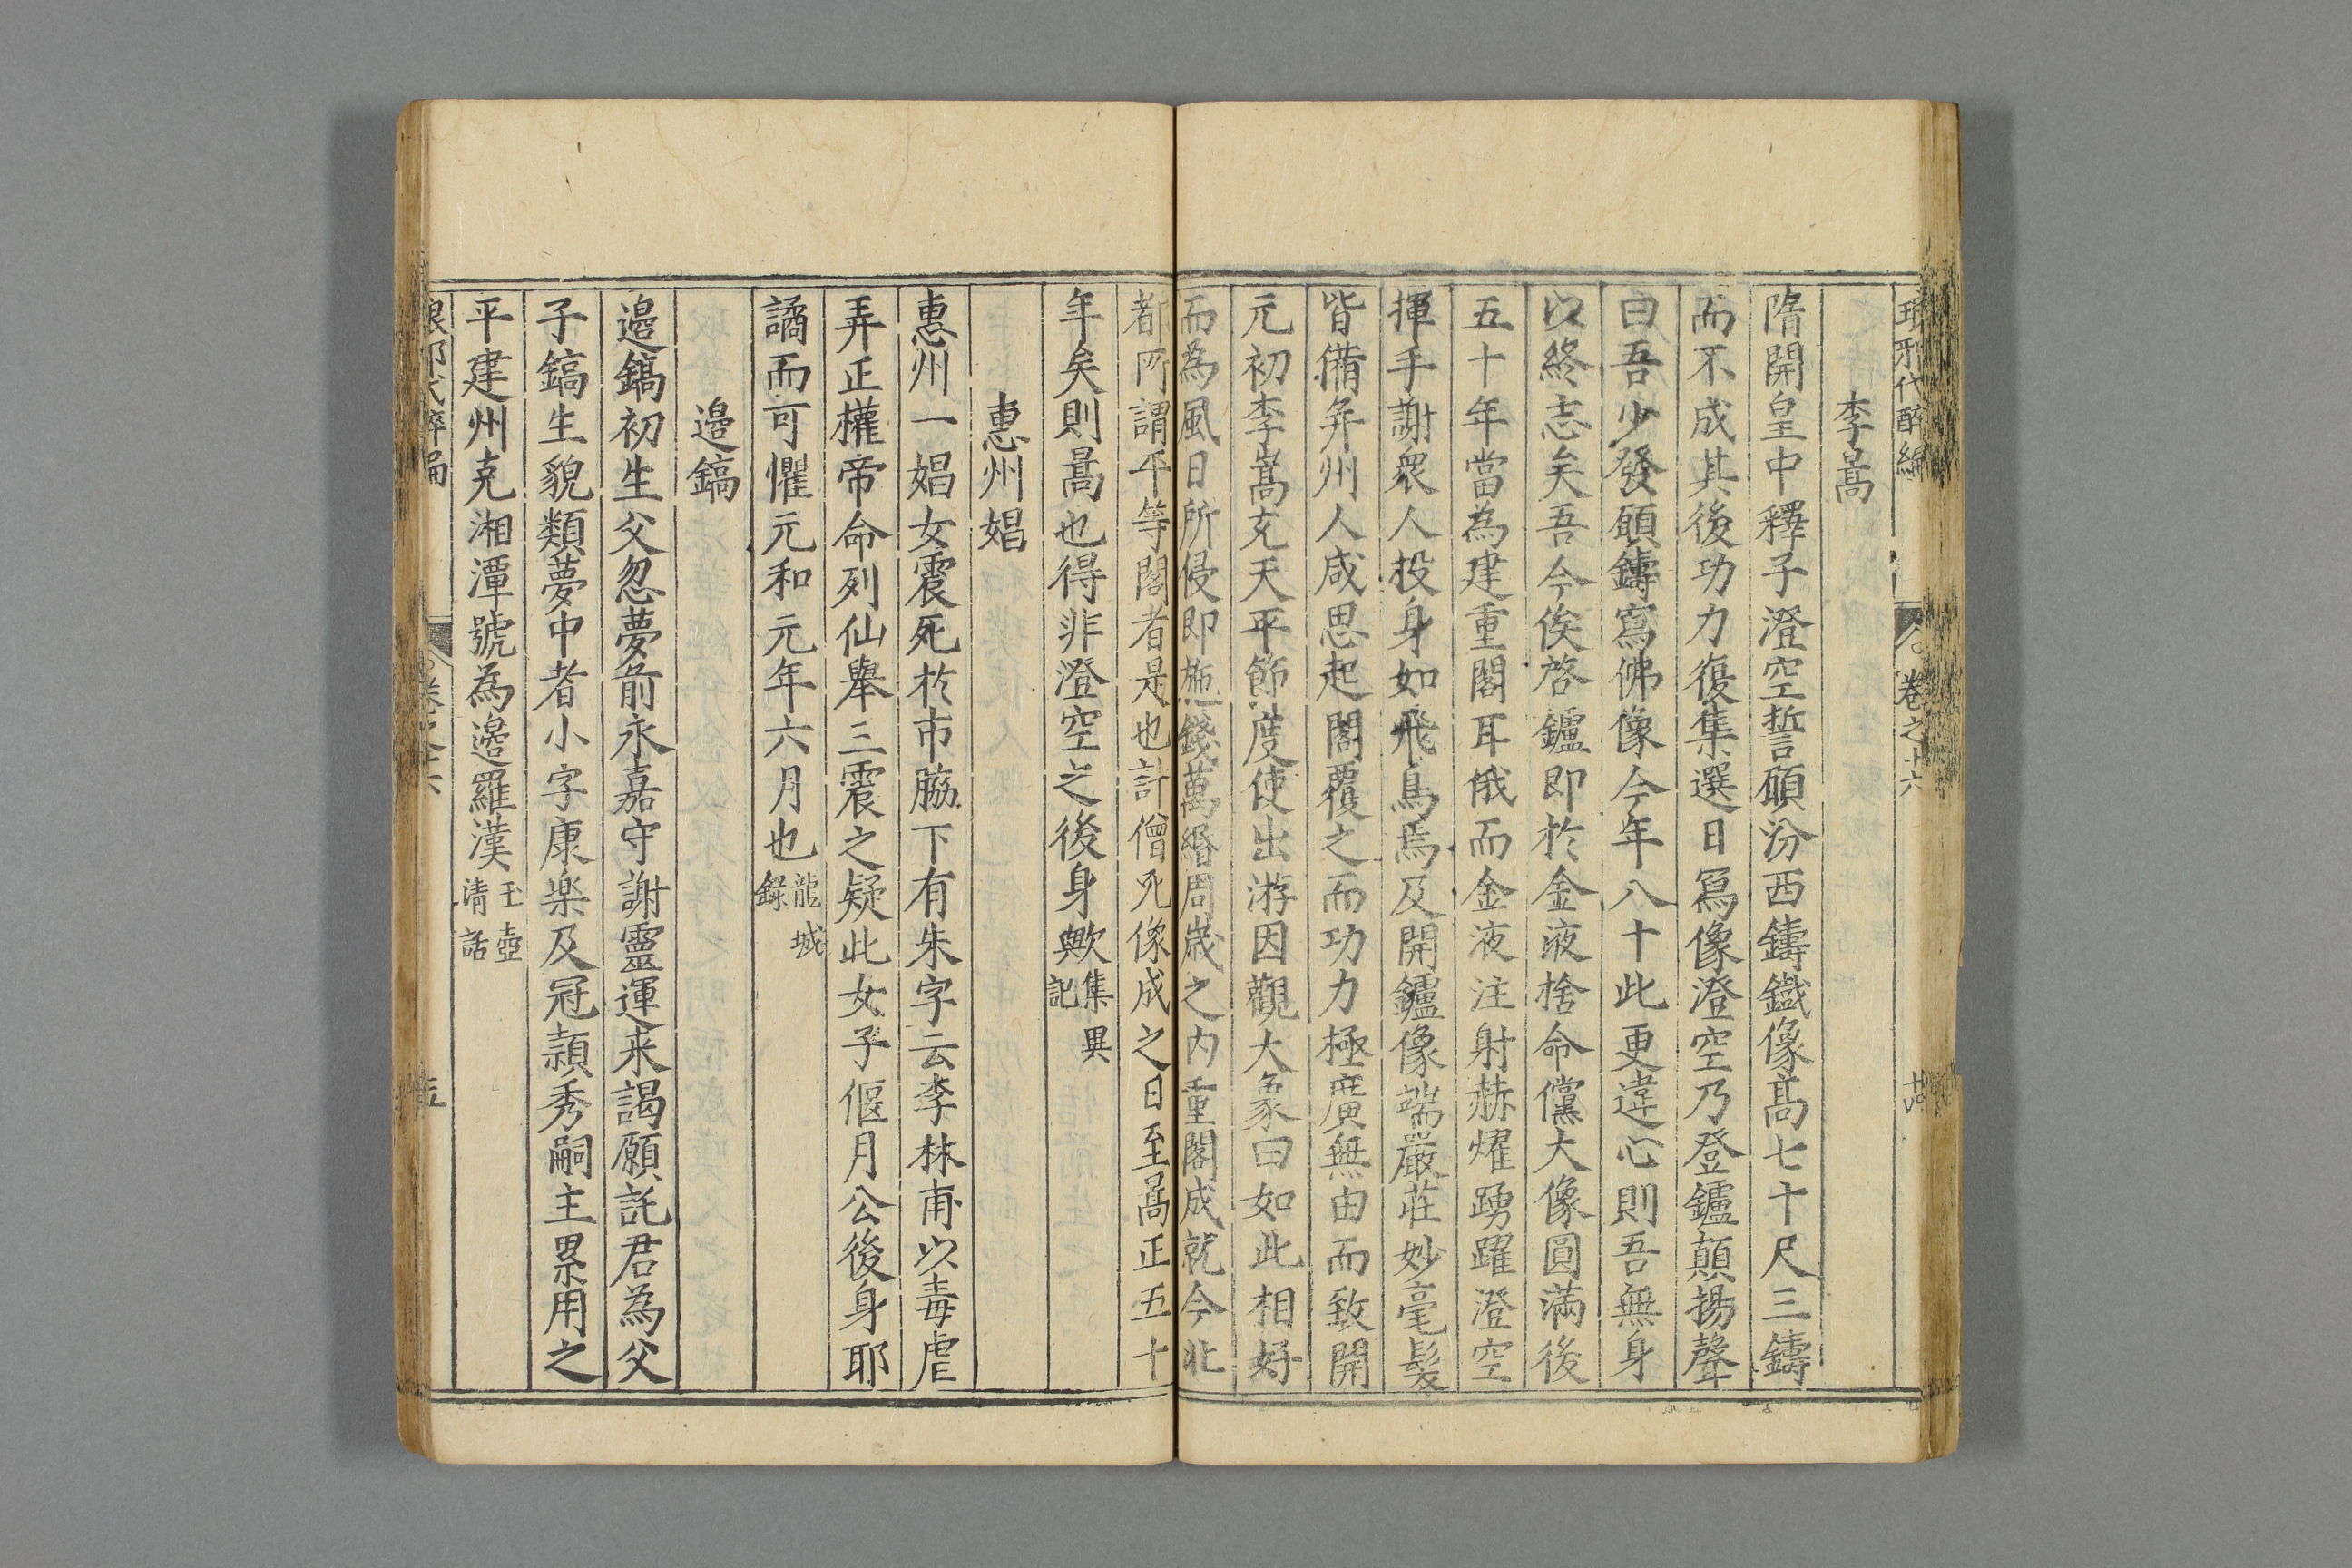 琅邪代醉編 卷之十六 廿四
李暠
隋開皇中釋子澄空誓願汾西鑄鐵像高七十尺三鑄
而不成其後功力復集選日寫像澄空乃登鑪顛揚聲
曰吾少發願鑄寫佛像今年八十此更違心則吾無身
以終志矣吾今俟啓鑪即於金液捨命儻大像圓滿後
五十年當為建重閣耳俄而金液注射赫燿踴躍澄空
揮手謝衆人投身如飛鳥焉及開鑪像端嚴莊妙毫髮
皆備并州人咸思起閣覆之而功力極廣無由而致開
元初李暠充天平節度使出游因觀大象曰如此相好
而為風日所侵即施錢萬緡周歲之內重閣成就今北
都所謂平等閣者是也計僧死像成之日至暠正五十
年矣則暠也得非澄空之後身歟集異記
惠州娼
惠州一娼女震死於市脇下有朱字云李林甫以毒虐
弄正權帝命列仙舉三震之疑此女子偃月公後身耶
譎而可懼元和元年六月也龍城錄
邉鎬
邉鎬初生父忽夢前永嘉守謝靈運来謁願託君為父
子鎬生貌類夢中者小字康楽及冠頴秀嗣主累用之
平建州克湘潭號為邉羅漢玉壺清話